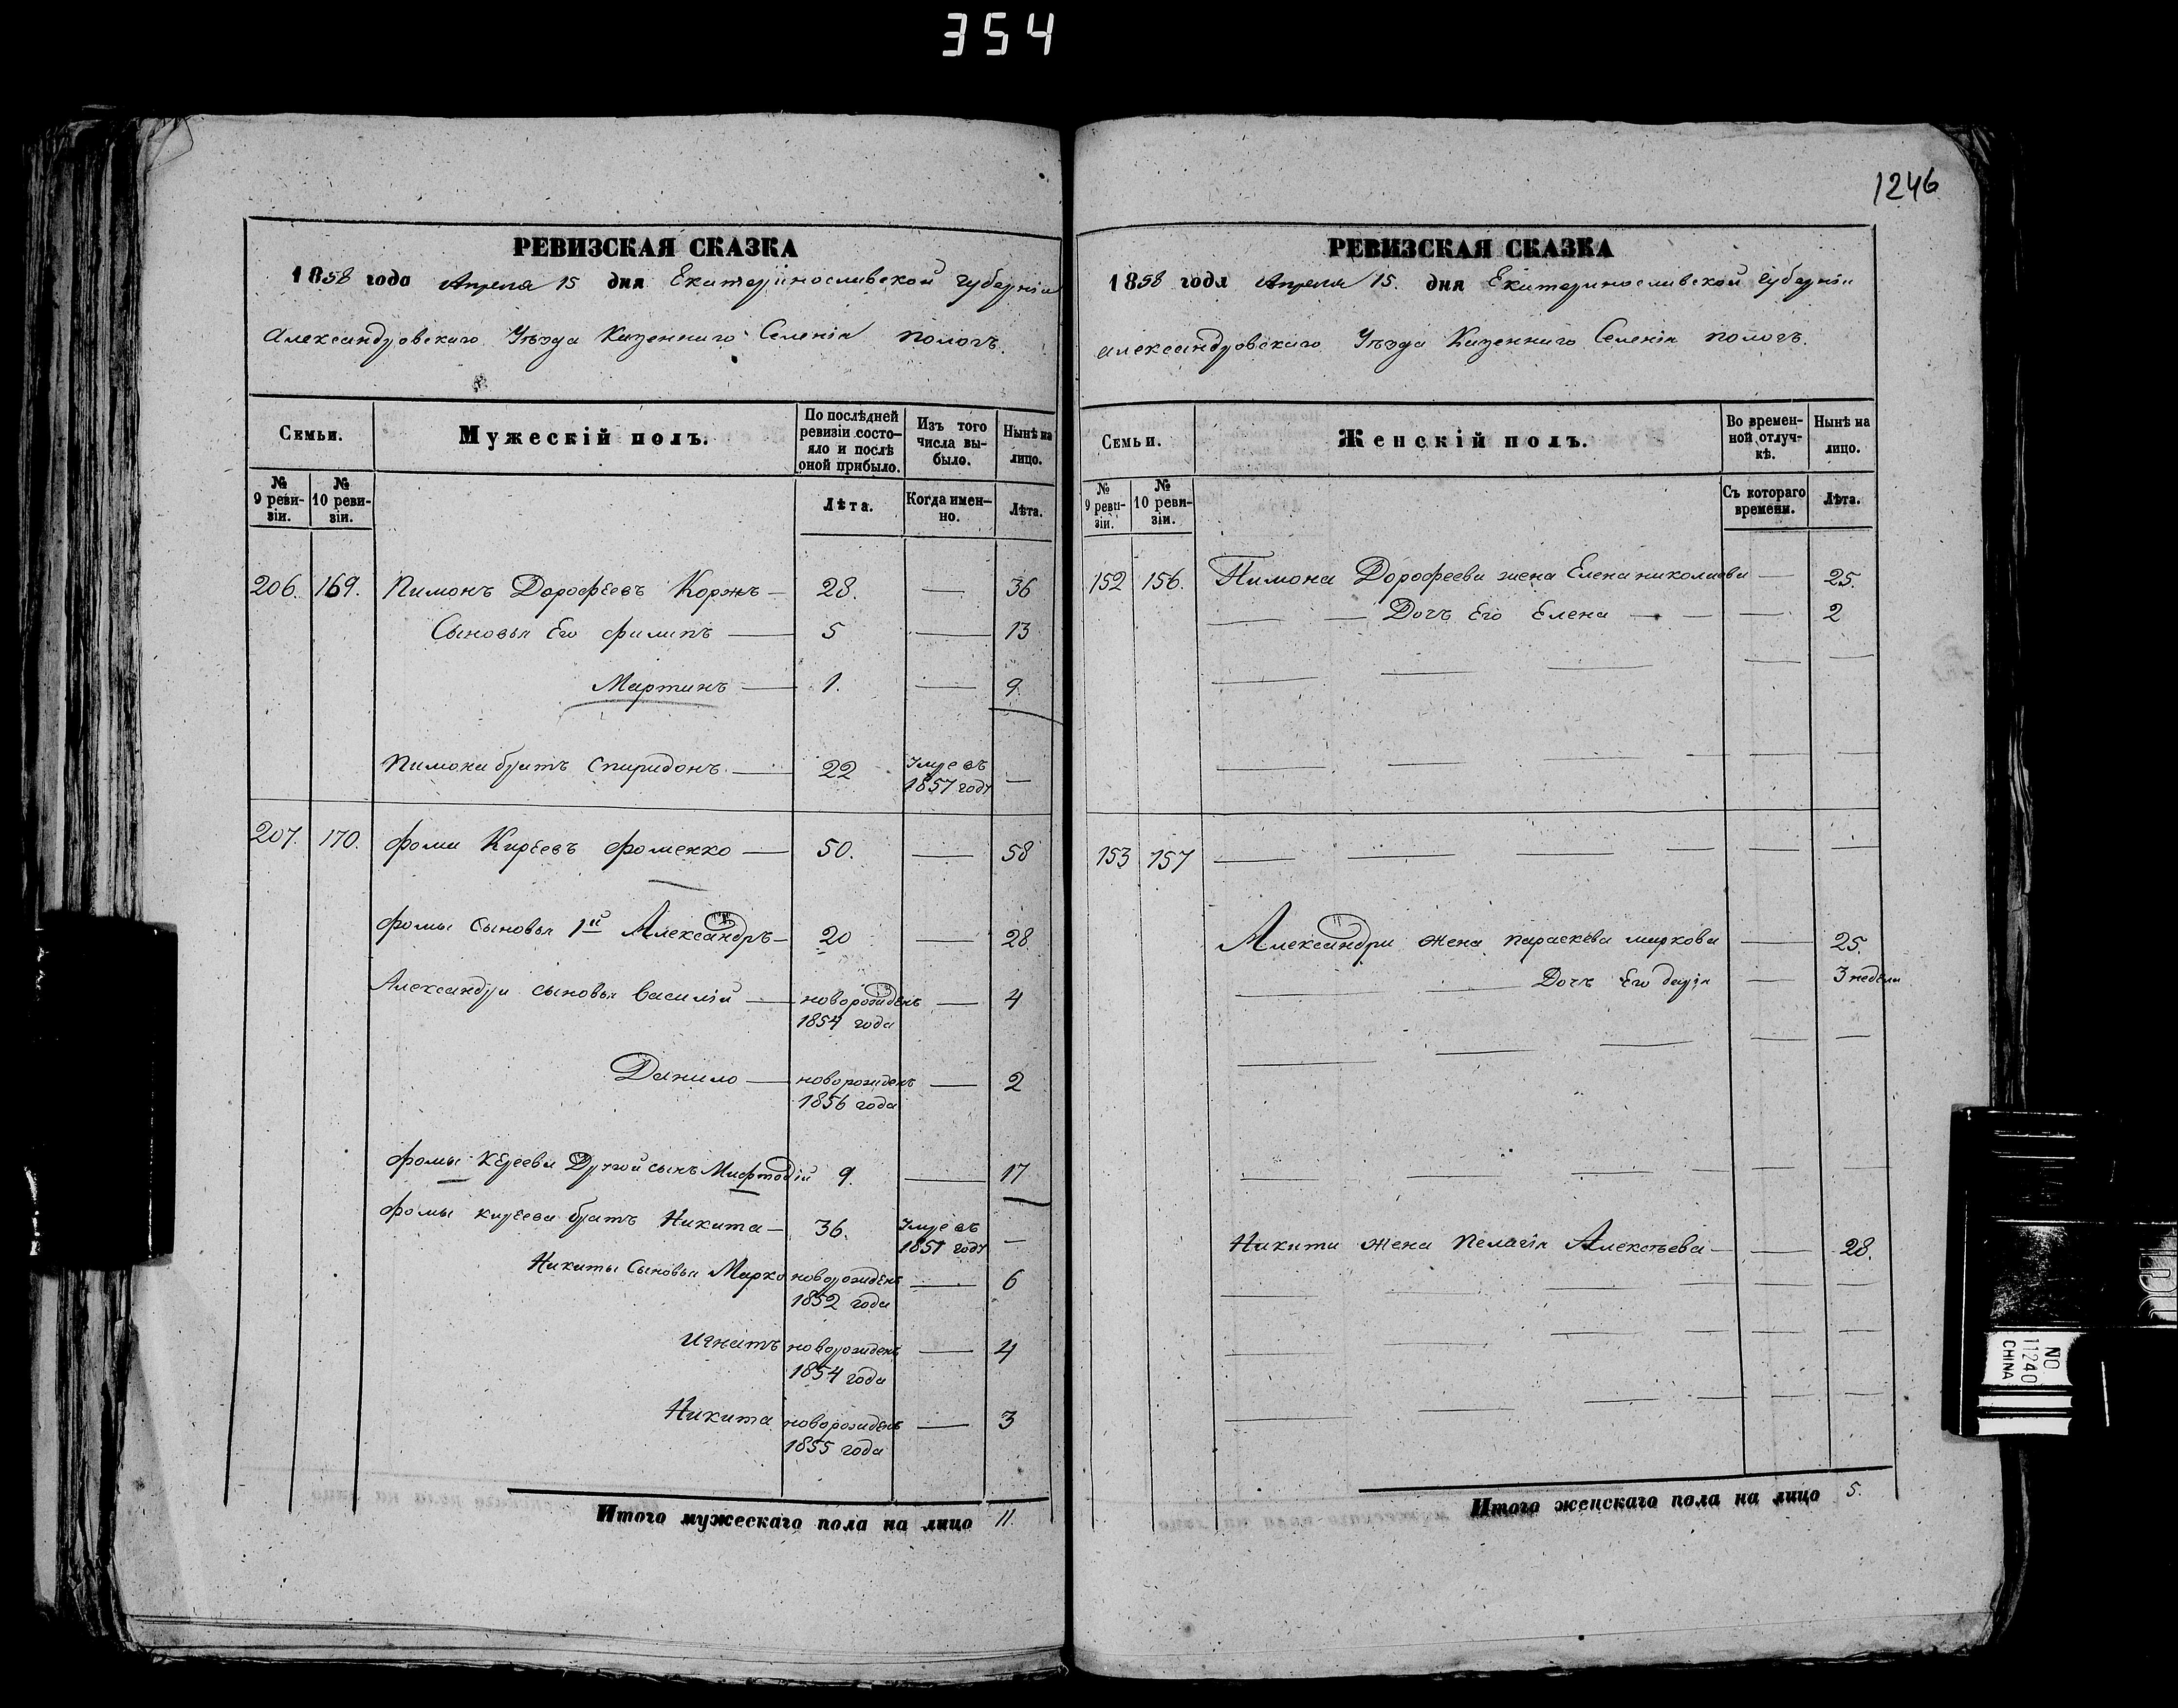 354
1246
РЕВИЗСКАЯ СКАЗКА
1858 года Апреля 15 дня Екатеринославской губерніи
Александровскаго Уѣзда Казеннаго Селенія пологъ.
Семьи.
Мужескій полъ.
По послѣдней ревизіи состояло и послѣ оной прибыло.
Изъ того числа выбыло.
Нынѣ на лицо.
№ 9 ревизіи.
№ 10 ревизіи.
Лѣта.
Когда именно.
Лѣта.
206. 169. Пимонъ Дорофѣевъ Коржъ — 28. — 36
Сыновья Его филипъ — 5 — 13
Мартинъ — 1. — 9.
Пимона братъ Спиридонъ. — 22 Умре въ —
1857 году
207. 170. фома Кирѣевъ фоменко — 50. — 58
фомы сыновья 1й Александръ — 20 — 28
Александра сыновья василій — новорожденъ — 4
1854 года
Данило — новорожденъ — 2
1856 года
фомы Кѣреева Другой сынъ Мифтодій 9. — 17
фомы кирѣева братъ Никита — 36. Умре въ —
1857 году
Никиты Сыновья Марко новорожденъ — 6
1852 года
Игнатъ новорожденъ — 4
1854 года
Никита новорожденъ — 3
1855 года
Итого мужескаго пола на лицо 11.
РЕВИЗСКАЯ СКАЗКА
1858 года Апреля 15. дня Екатеринославской губерніи
александровскаго Уѣзда Казеннаго Селенія пологъ.
Семьи.
Женскій полъ.
Во временной отлучкѣ.
Нынѣ на лицо.
№ 9 ревизіи.
№ 10 ревизіи.
Съ котораго времени.
Лѣта.
152 156. Пимона Дорофеева жена Елена николаева — 25.
— — Дочь Его Елена — — 2
153 157 — — — — — —
Александра жена параскева маркова — 25.
— — Дочь Его дарія — 3 недели
Никити жена пелагія Алексѣева — — 28.
Итого женскаго пола на лицо 5.
NO
11240
CHINA